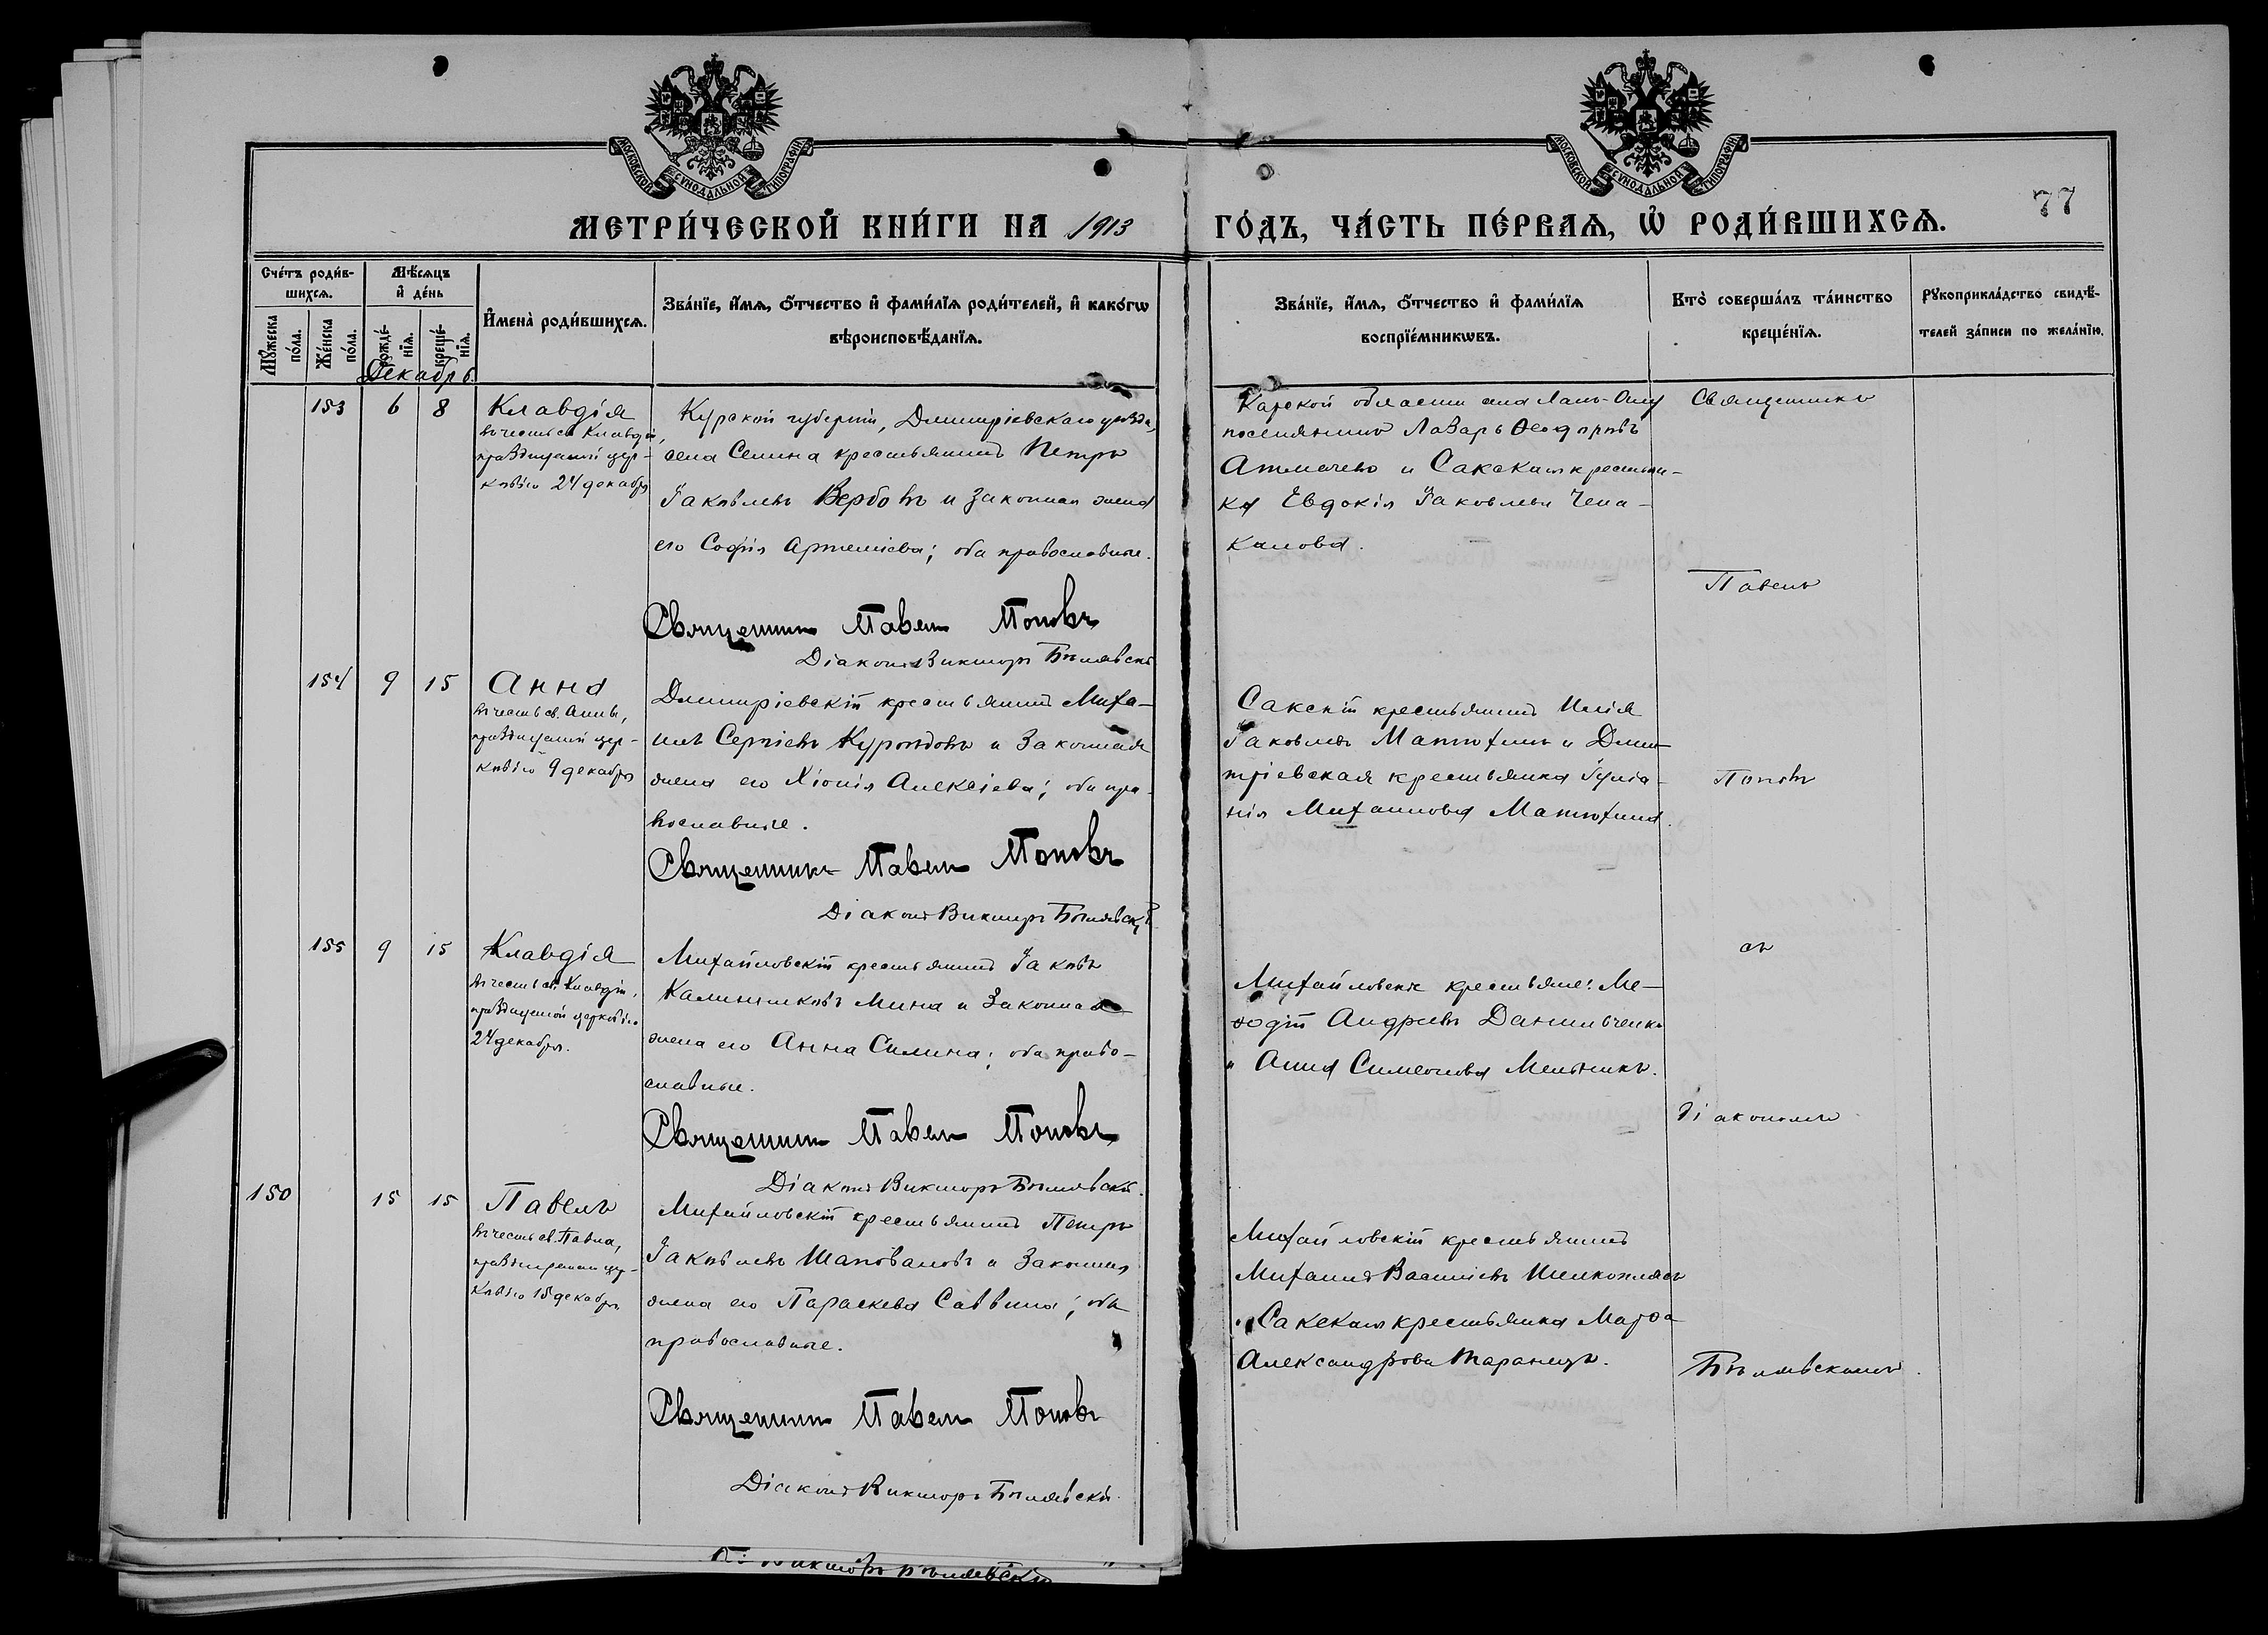 МОСКОВСКОЙ СѴНОДАЛЬНОЙ ТИПОГРАФІИ
МОСКОВСКОЙ СѴНОДАЛЬНОЙ ТИПОГРАФІИ
77
МЕТРИ́ЧЕСКОЙ КНИ́ГИ НА 1913 ГО́ДЪ, ЧА́СТЬ ПЕ́РВАѦ, Ѡ҆ РОДИ́ВШИХСѦ.
Сче́тъ роди́в-
шихсѧ.
Мꙋ́жеска по́ла.
Же́нска по́ла.
Мѣ́сѧцъ
и҆ де́нь
рожде́-
нїѧ.
креще́-
нїѧ.
Декабрь.
И҆мена̀ роди́вшихсѧ.
Зва́нїе, и҆́мѧ, ѻ҆́тчество и҆ фами́лїѧ роди́телей, и҆ како́гѡ
вѣроисповѣ́данїѧ.
Зва́нїе, и҆́мѧ, ѻ҆́тчество и҆ фами́лїѧ
воспрїе́мникѡвъ.
Кто̀ соверша́лъ та́инство
креще́нїѧ.
Рꙋкоприкла́дство свидѣ́-
телей за́писи по жела́нїю.
153 6 8 Клавдія
въ честь св. Клавдіи,
празднуемой цер-
ковію 24 декабря
Курской губерніи, Димитріевскаго уѣзда,
села Сенина крестьянинъ Петръ
Іаковлевъ Вербовъ и законная жена
его Софія Артеміева; оба православные.
Священникъ Павелъ Поповъ
Діаконъ Викторъ Бѣлявскій
Карской области села
поселянинъ Лазарь Ѳеодоровъ
и Сакская крестьян-
ка Евдокія Іаковлева Чепа-
калова.
Священникъ
Павелъ
154 9 15 Анна
въ честь св. Анны,
празднуемой цер-
ковію 9 декабря
Димитріевскій крестьянинъ Миха-
илъ Сергіевъ Куроѣдовъ и законная
жена его Хіонія Алексіева; оба пра-
вославные.
Священникъ Павелъ Поповъ
Діаконъ Викторъ Бѣлявскій
Сакскій крестьянинъ Илія
Іаковлевъ Матюхинъ и Дими-
тріевская крестьянка Іуліа-
нія Михаилова Матюхина.
Поповъ
155 9 15 Клавдія
въ честь св. Клавдіи,
празднуемой церковію
24 декабря.
Михайловскій крестьянинъ Іаковъ
Калиниковъ Мина и законная
жена его Анна Силина; оба право-
славные.
Священникъ Павелъ Поповъ
Діаконъ Викторъ Бѣлявскій.
Михайловскіе крестьяне: Ме-
ѳодій Андреевъ Данильченко
и Анна Симеонова Мельникъ.
съ
діакономъ
150 15 15 Павелъ
въ честь св. Павла,
празднуемаго цер-
ковію 15 декабря
Михайловскій крестьянинъ Петръ
Іаковлевъ Шаповаловъ и законная
жена его Параскева Саввина; оба
православные.
Священникъ Павелъ Поповъ
Діаконъ Викторъ Бѣлявскій.
Михайловскій крестьянинъ
Михаилъ Василіевъ Шелкоплясъ
и Сакская крестьянка Марѳа
Александрова Таранецъ.
Бѣлявскимъ.
Викторъ Бѣлявскій